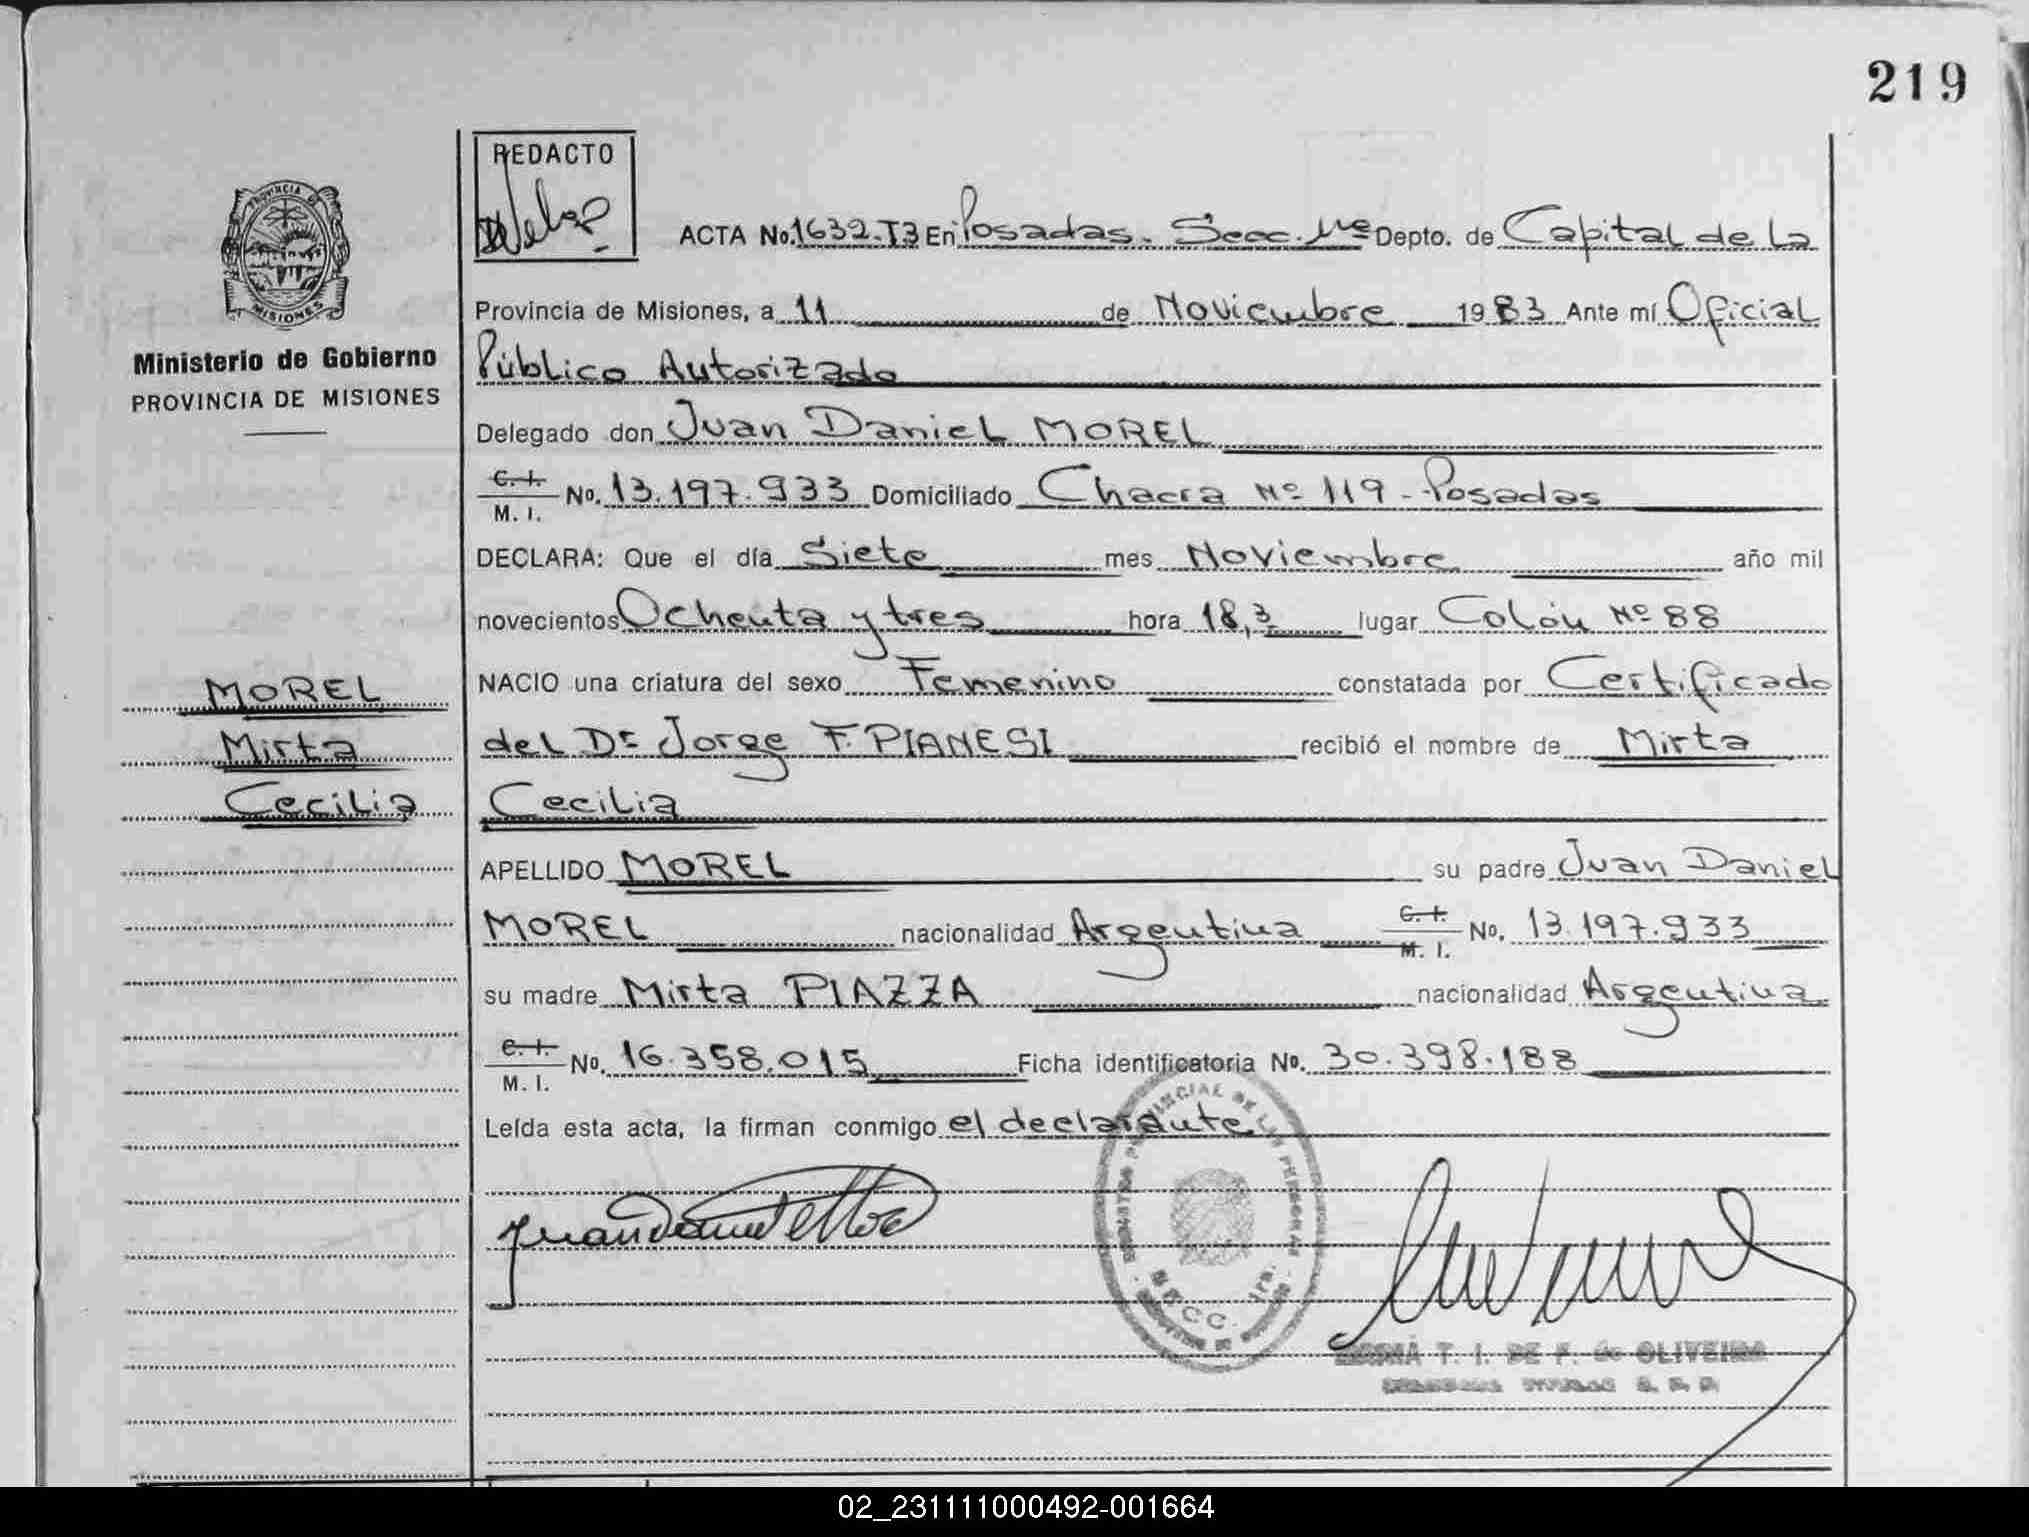 219
REDACTO
ACTA No. 1632-T3 En Posadas. Secc. 1ra Depto. de Capital de la
Provincia de Misiones, a 11 de Noviembre 1983 Ante mí Oficial
Público Autorizado
Delegado don Juan Daniel MOREL
C. I. M. I. No. 13.197.933 Domiciliado Chacra Nº 119 - Posadas
DECLARA: Que el día Siete mes Noviembre año mil
novecientos Ochenta y tres hora 18,3 lugar Colón Nº 88
NACIO una criatura del sexo Femenino constatada por Certificado
del Dr Jorge F. PIANESI recibió el nombre de Mirta
Cecilia
APELLIDO MOREL su padre Juan Daniel
MOREL nacionalidad Argentina C. I. M. I. No. 13.197.933
su madre Mirta PIAZZA nacionalidad Argentina
C. I. M. I. No. 16.358.015 Ficha identificatoria No. 30.398.188
Leída esta acta, la firman conmigo el declarante
PROVINCIA DE
MISIONES
Ministerio de Gobierno
PROVINCIA DE MISIONES
MOREL
Mirta
Cecilia
Juan Daniel Morel
SECC. 1ra.
T. I. DE F. de OLIVEIRA
02_231111000492-001664